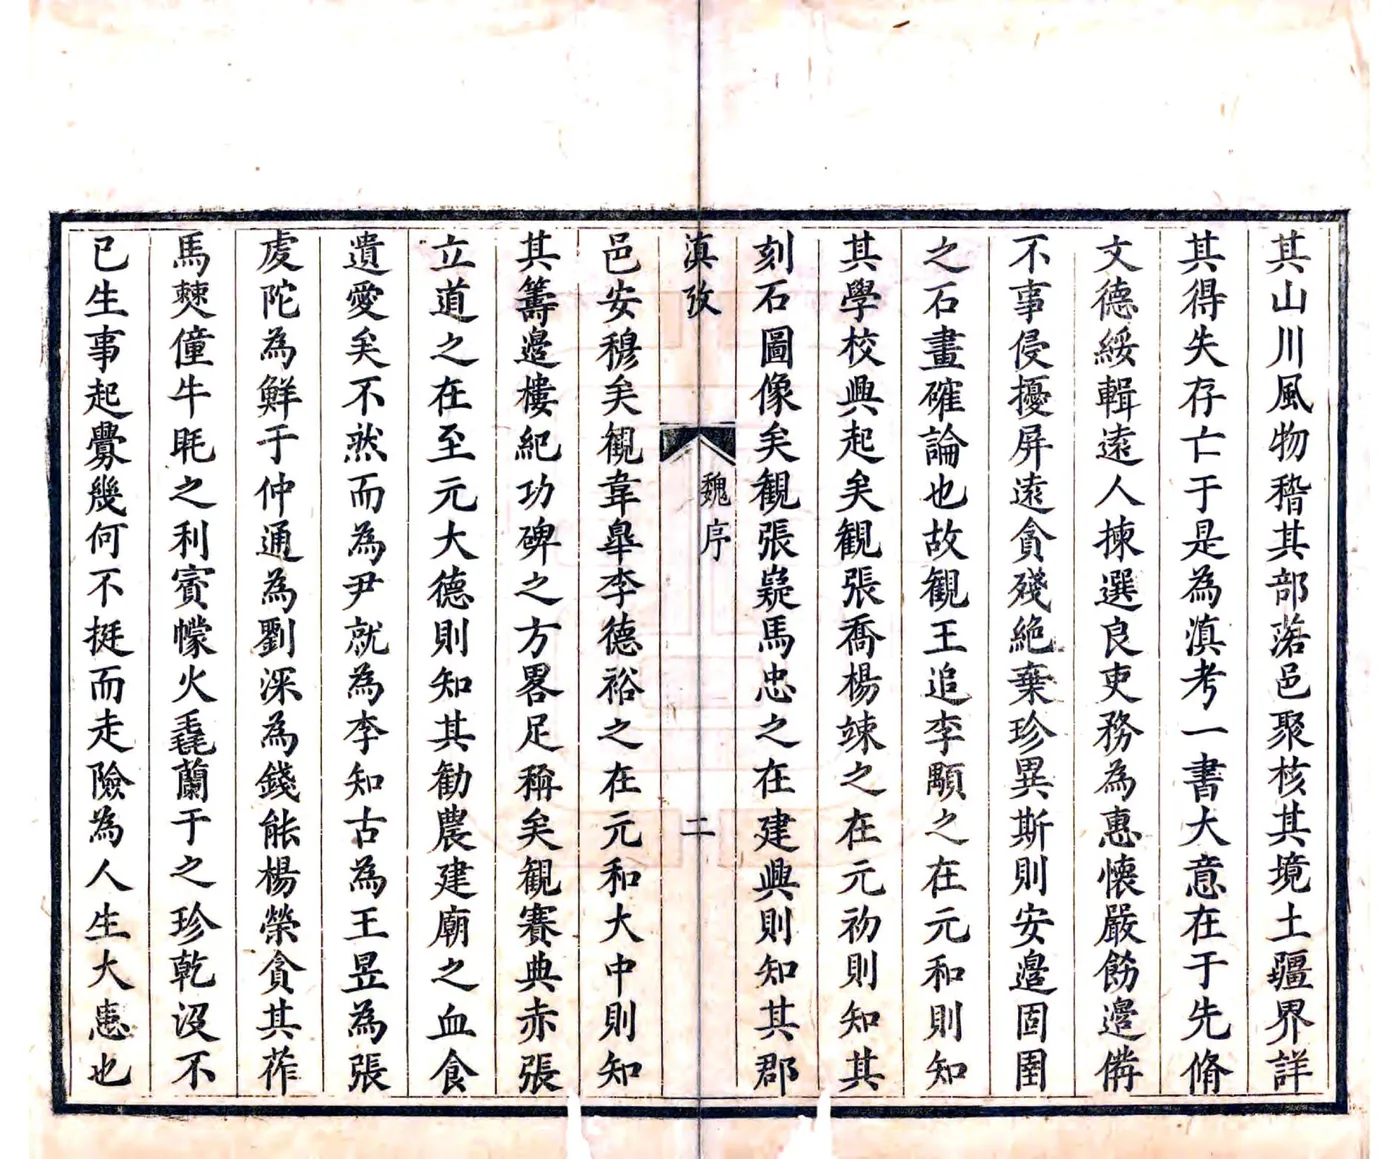 其山川風物稽其部落邑聚核其境土疆界詳
其得失存亡于是為滇考一書大意在于先脩
文德綏輯遠人揀選良吏務為惠懷嚴飭邊備
不事侵擾屏遠貪殘絶棄珍異斯則安邊固圉
之石畫確論也故觀王追李顒之在元和則知
其學校興起矣觀張喬楊竦之在元初則知其
刻石圖像矣觀張嶷馬忠之在建興則知其郡
滇攷
魏序
二
邑安穆矣觀韋臯李德裕之在元和大中則知
其籌邊樓紀功碑之方畧足稱矣觀賽典赤張
立道之在至元大德則知其勸農建廟之血食
遺愛矣不然而為尹就為李知古為王昱為張
虔陀為鮮于仲通為劉深為錢能楊榮貪其莋
馬僰僮牛毦之利賨幏火毳蘭干之珍乾沒不
已生事起釁幾何不挺而走險為人生大患也